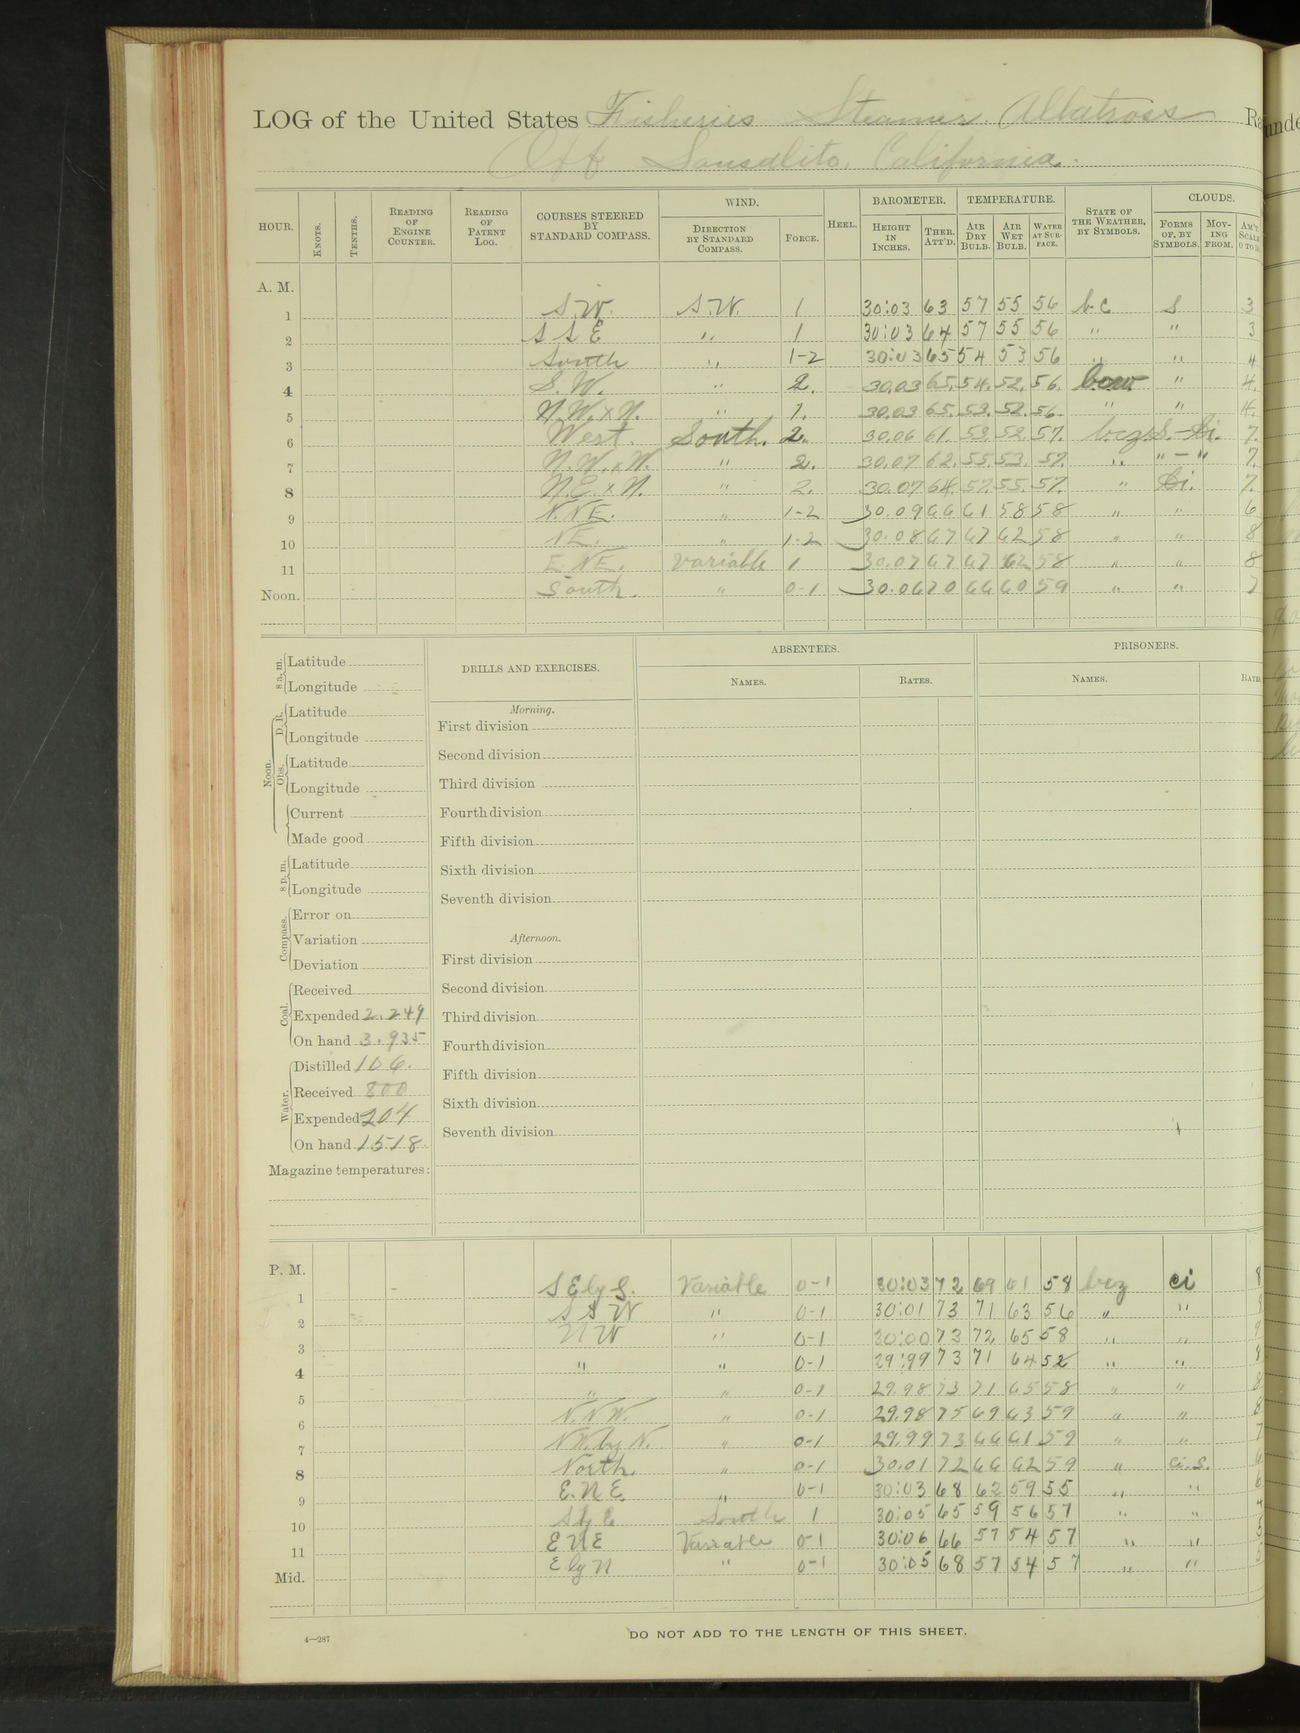 LOG of the United States Fisheries Steamer Albatross
Off Sausalito, California.
HOUR. KNOTS. TENTHS. READING OF ENGINE COUNTER. READING OF PATENT LOG. COURSES STEERED BY STANDARD COMPASS. WIND. DIRECTION BY STANDARD COMPASS. FORCE. HEEL. BAROMETER. HEIGHT IN INCHES. THER. ATT'D. TEMPERATURE. AIR DRY BULB. AIR WET BULB. WATER AT SURFACE. STATE OF THE WEATHER, BY SYMBOLS. CLOUDS. FORMS OF, BY SYMBOLS. MOVING FROM. AM'T.
A. M.
1 S.W. S.W. 1 30:03 63 57 55 56 b.c S 3
2 S S E " 1 30:03 64 57 55 56 " " 3
3 South " 1-2 30:03 65 54 53 56 " " 4
4 S.W. " 2. 30.03 65. 54. 52. 56. " 4.
5 N.W. x N. " 1. 30.03 65. 53. 52. 56. " " 4.
6 West. South. 2. 30.06 61. 53. 52. 57. bcz S.-Ci. 7.
7 N.W. x W. " 2. 30.07 62. 55. 53. 57. " " - " 7.
8 N.E. x N. " 2. 30.07 64. 57. 55. 57. " Ci. 7.
9 N.NE. " 1-2 30.09 66 61 58 58 " " 6
10 NE. " 1-2 30.08 67 67 62 58 " " 8
11 E.NE. Variable 1 30.07 67 67 62 58 " " 8
Noon. South. " 0-1 30.06 70 66 60 59 " " 7
8 a. m. Latitude
Longitude
Noon. D. R. Latitude
Longitude
Obs. Latitude
Longitude
Current
Made good
8 p. m. Latitude
Longitude
Compass. Error on
Variation
Deviation
Coal. Received
Expended 2.249
On hand 3.935
Water. Distilled 106.
Received 800
Expended 204
On hand 1518
Magazine temperatures:
DRILLS AND EXERCISES.
Morning.
First division
Second division
Third division
Fourth division
Fifth division
Sixth division
Seventh division
Afternoon.
First division
Second division
Third division
Fourth division
Fifth division
Sixth division
Seventh division
ABSENTEES.
NAMES. RATES.
PRISONERS.
NAMES.
P. M.
1 S E by S. Variable 0-1 30:03 72 69 61 58 bcz ci 8
2 S S W " 0-1 30:01 73 71 63 56 " "
3 N W " 0-1 30:00 73 72 65 58 " " 9
4 " " 0-1 29:99 73 71 64 52 " " 8
5 " " 0-1 29.98 73 71 65 58 " " 8
6 N.NW. " 0-1 29.98 75 69 63 59 " " 8
7 NW. by N. " 0-1 29.99 73 66 61 59 " " 7
8 North. " 0-1 30.01 72 66 62 59 " ci.s. 6
9 E.N E. " 0-1 30:03 68 62 59 55 " " 6
10 South 1 30:05 65 59 56 57 " " 4
11 E N E Variable 0-1 30:06 66 57 54 57 " "
Mid. E by N " 0-1 30:05 68 57 54 57 " "
4—287
DO NOT ADD TO THE LENGTH OF THIS SHEET.